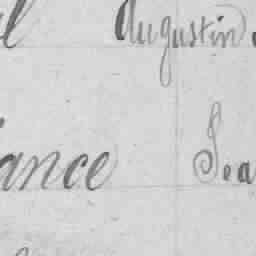 l Augustin
ance Sea